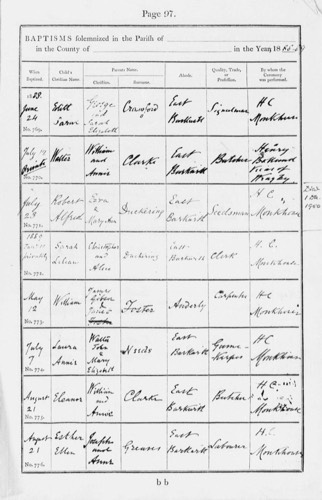 Page 97.
BAPTISMS solemnized in the Parish of
in the County of in the Year 18
When Baptized. Child's Christian Name. Parents Name. Abode. Quality, Trade, or Profession. By whom the Ceremony was performed.
Christian. Surname.
June 24 Edith Crawford East Barkwith Signalman H C Monkhouse
No. 769.
July Walter William and Annie Clarke East Barkwith Butcher Henry Vicar of Wragby
Private
No. 770.
July 28 Robert Alfred Duckering East Barkwith Seedsman H. C. Monkhouse
No. 771.
Sarah Lilian Christopher and Alice Duckering East Barkwith Clerk H. C. Monkhouse
privately
No. 772.
May 12 William James & Foster Carpenter H C Monkhouse
No. 773.
July 7 Laura Annie Walter John & Mary Elizabeth East Barkwith Game Keeper H C Monkhouse
No. 774.
August 21 Eleanor William and Annie Clarke East Barkwith Butcher H C Monkhouse
No. 775.
August 21 Esther Ellen Joseph and Anne Greaves East Barkwith Labourer H. C. Monkhouse
No. 776.
b b